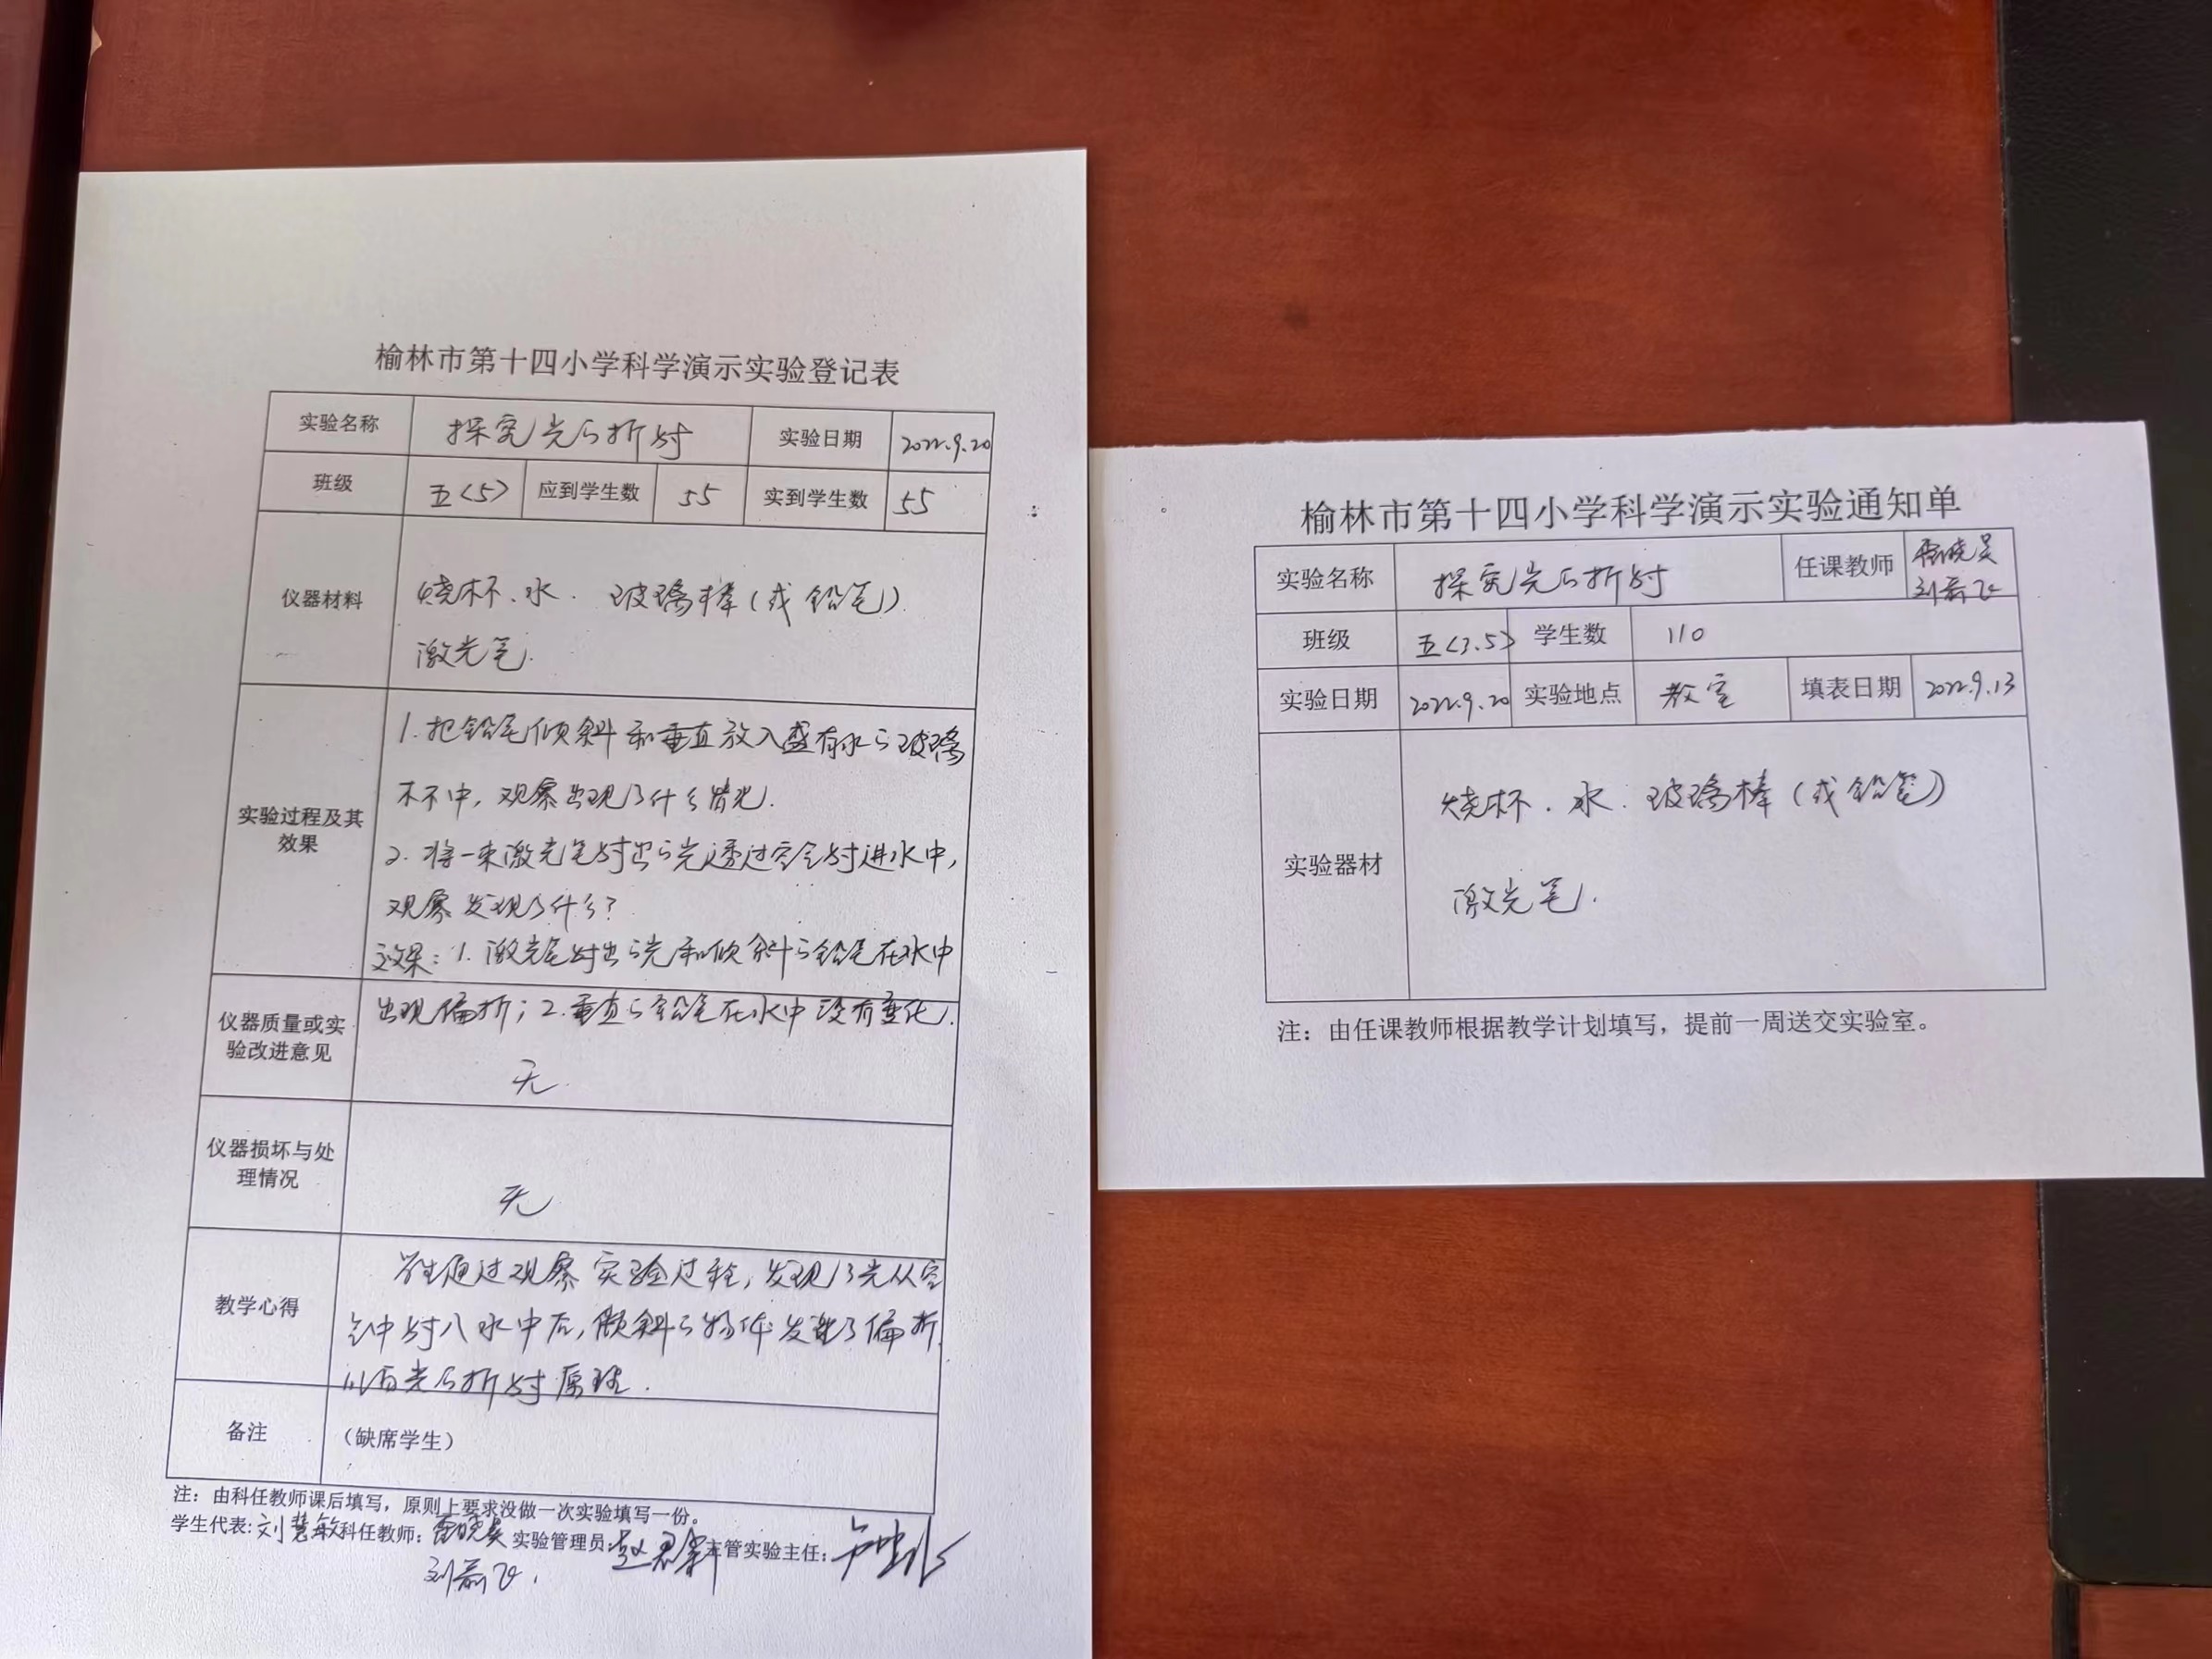 榆林市第十四小学科学演示实验登记表
实验名称 探究光的折射 实验日期 2022.9.20
班级 五(5) 应到学生数 55 实到学生数 55
仪器材料
烧杯、水、玻璃棒(或铅笔)
激光笔.
实验过程及其
效果
1.把铅笔倾斜和垂直放入盛有水的玻璃
杯中,观察出现了什么情况.
2.将一束激光笔射出的光透过空气射进水中,
观察发现了什么?
效果:1.激光笔射出的光和倾斜的铅笔在水中
出现偏折;2.垂直的铅笔在水中没有变化.
仪器质量或实
验改进意见
无.
仪器损坏与处
理情况
无
教学心得
学生通过观察实验过程,发现了光从空
气中射入水中后,倾斜的物体发生了偏折.
光的折射原理.
备注 (缺席学生)
注:由科任教师课后填写,原则上要求没做一次实验填写一份。
学生代表:刘慧敏 科任教师: 实验管理员: 主管实验主任:
榆林市第十四小学科学演示实验通知单
实验名称 探究光的折射 任课教师
班级 五(3.5) 学生数 110
实验日期 2022.9.20 实验地点 教室 填表日期 2022.9.13
实验器材
烧杯.水.玻璃棒(或铅笔)
激光笔.
注:由任课教师根据教学计划填写,提前一周送交实验室。